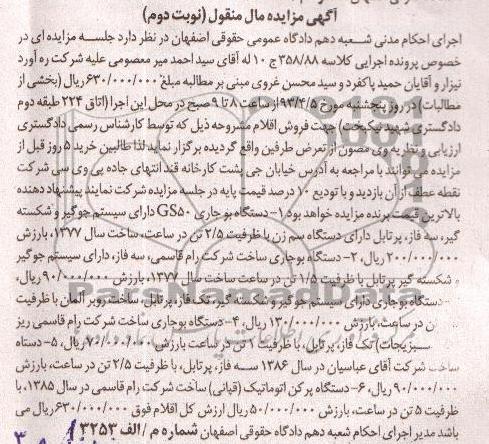 آگهی مزایده مال منقول (نوبت دوم)
اجرای احکام مدنی شعبه دهم دادگاه عمومی حقوقی اصفهان در نظر دارد جلسه مزایده ای در
خصوص پرونده اجرایی کلاسه ۳۵۸/۸۸ ج ۱۰ له آقای سید احمد میر معصومی علیه شرکت ره آورد
نیزار و آقایان حمید پاکفرد و سید محسن غروی مبنی بر مطالبه مبلغ ۶۳۰/۰۰۰/۰۰۰ ریال (بخشی از
مطالبات) در روز پنجشنبه مورخ ۹۳/۴/۵ از ساعت ۸ تا ۹ صبح در محل این اجرا (اتاق ۲۲۴ طبقه دوم
دادگستری شهید نیکبخت) جهت فروش اقلام مشروحه ذیل که توسط کارشناس رسمی دادگستری
ارزیابی و نظریه وی مصون از تعرض طرفین واقع گردیده برگزار نماید لذا طالبین خرید ۵ روز قبل از
مزایده می توانند با مراجعه به آدرس خیابان جی پشت کارخانه قند انتهای جاده بی وی سی شرکت
نقطه عطف از آن بازدید و با تودیع ۱۰ درصد قیمت پایه در جلسه مزایده شرکت نمایند پیشنهاد دهنده
بالاترین قیمت برنده مزایده خواهد بود ۱- دستگاه بوجاری GS۵۰ دارای سیستم جوگیر و شکسته
گیر، سه فاز، پرتابل دارای دستگاه سم زن با ظرفیت ۲/۵ تن در ساعت، ساخت سال ۱۳۷۷، بارزش
۲۰۰/۰۰۰/۰۰۰ ریال، ۲- دستگاه بوجاری ساخت شرکت رام قاسمی، سه فاز، دارای سیستم جوگیر
و شکسته گیر پرتابل با ظرفیت ۱/۵ تن در ساعت ساخت سال ۱۳۷۷، بارزش ۹۰/۰۰۰/۰۰۰ ریال،
دستگاه بوجاری دارای سیستم جوگیر و شکسته گیر، تک فاز، پرتابل، ساخت روبر آلمان با ظرفیت
تن در ساعت، بارزش ۱۳۰/۰۰۰/۰۰۰ ریال، ۴- دستگاه بوجاری ساخت شرکت رام قاسمی ریز
سبزیجات) تک فاز، پرتابل، با ظرفیت ۱ تن در ساعت بارزش ۷۰/۰۰۰/۰۰۰ ریال، ۵- دستگاه
ساخت شرکت آقای عباسیان در سال ۱۳۸۶ سه فاز، پرتابل، با ظرفیت ۲/۵ تن در ساعت، بارزش
۹۰/۰۰۰/۰۰۰ ریال، ۶- دستگاه پرکن اتوماتیک (قپانی) ساخت شرکت رام قاسمی در سال ۱۳۸۵، با
ظرفیت ۵ تن در ساعت، بارزش ۵۰/۰۰۰/۰۰۰ ریال ارزش کل اقلام فوق ۶۳۰/۰۰۰/۰۰۰ ریال می
باشد مدیر اجرای احکام شعبه دهم دادگاه حقوقی اصفهان شماره م / الف ۳۲۵۳